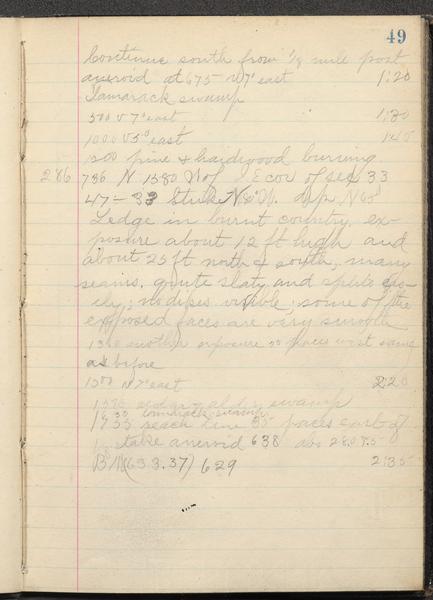 49
Continue south from 1/4 mile post
aneroid at 675 V 7° east 1:20
Tamarack swamp
500 V 7° east 1:30
1000 V 5° east 145
1200 pine & hardwood burning
286 736 N 1580 W of E cor of sec 33
47-33 Strike N W. dip N
Ledge in burnt country, ex-
posure about 12 ft high and
about 25 ft north & south, many
seams, quite slaty and splits eas-
ily; no dikes visible; some of the
exposed faces are very smooth
another exposure 20 paces west same
as before
1500 N 7° east 2:20
cedar & alder swamp
1630 tamarack swamp
1933 reach line 35 paces east of
stake aneroid 638 abs 28.075
B.M. (633.37) 629 2:35